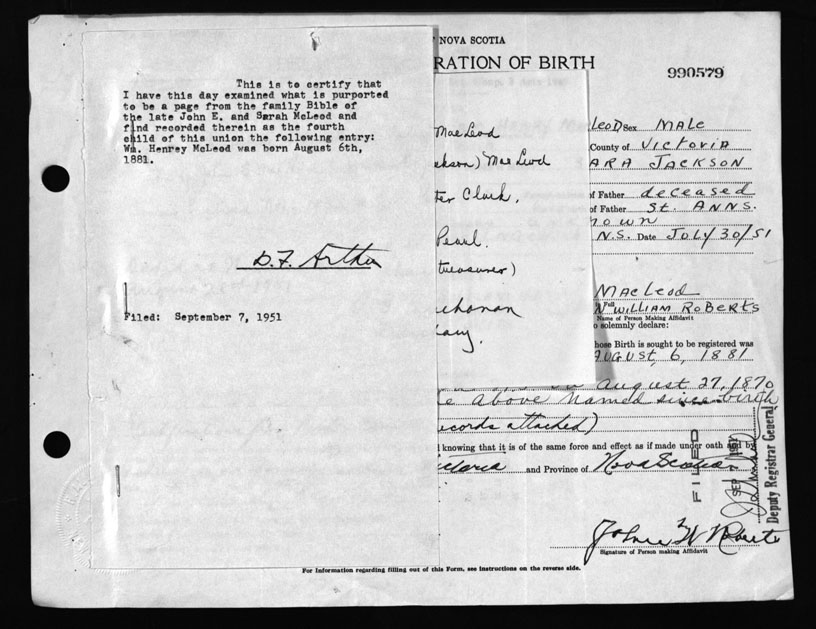 NOVA SCOTIA
RATION OF BIRTH
990579
This is to certify that
I have this day examined what is purported
to be a page from the family Bible of
the late John E. and Sarah McLeod and
find recorded therein as the fourth
child of this union the following entry:
Wm. Henrey McLeod was born August 6th,
1881.
D.F. Arthur
Filed: September 7, 1951
MacLeod
ckson) MacLeod
ter Clark,
Pearl.
treasurer)
chanan
Leod Sex MALE
County of VICTORIA
ARA JACKSON
of Father deceased
of Father St. ANNS.
nown
N.S. Date JULY/30/51
MacLeod
WILLIAM ROBERTS
Name of Person Making Affidavit
o solemnly declare:
hose Birth is sought to be registered was
AUGUST, 6, 1881
August 27, 1870
e above named since birth
ecords attached)
knowing that it is of the same force and effect as if made under oath and by
ictoria and Province of Nova Scotia
FILED
SEP 7 1951
Deputy Registrar General
John W Roberts
Signature of Person making Affidavit
For Information regarding filling out of this Form, see instructions on the reverse side.